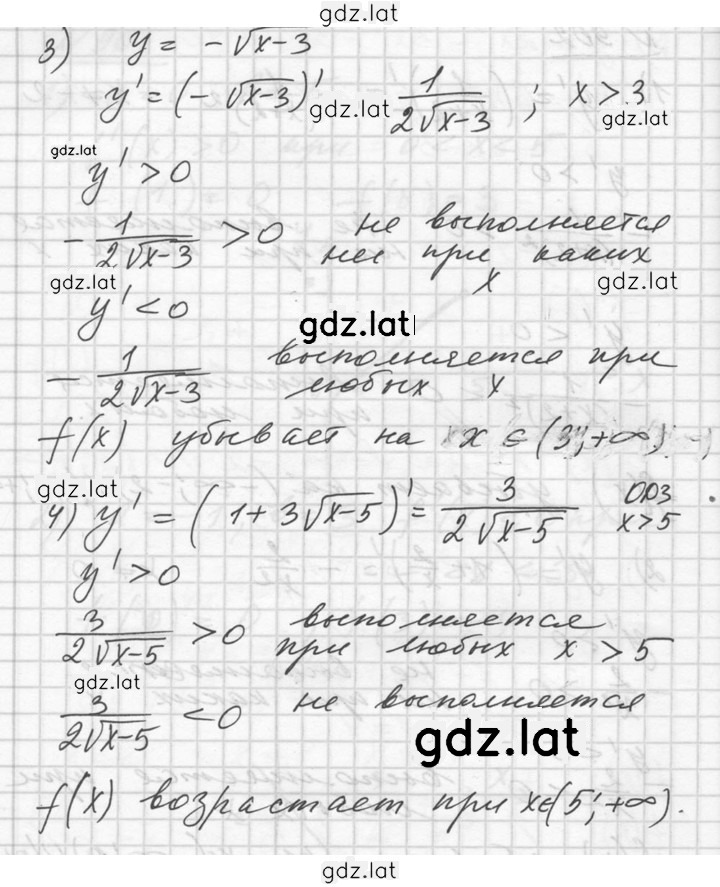 gdz.lat
3) y = -√x-3
y' = (-√x-3)' gdz.lat 1/2√x-3 ; x > 3
gdz.lat
gdz.lat
y' > 0
-1/2√x-3 > 0 не выполняется
ни при каких
x
gdz.lat gdz.lat
y' < 0
gdz.lat
-1/2√x-3 выполняется при
любых x
f(x) убывает на x ∈ (3; +∞)
gdz.lat
4) y' = (1+3√x-5)' = 3/2√x-5 ООЗ
x > 5
y' > 0
3/2√x-5 > 0 выполняется
при любых x > 5
gdz.lat
3/2√x-5 < 0 не выполняется
gdz.lat
f(x) возрастает при x∈(5; +∞).
gdz.lat